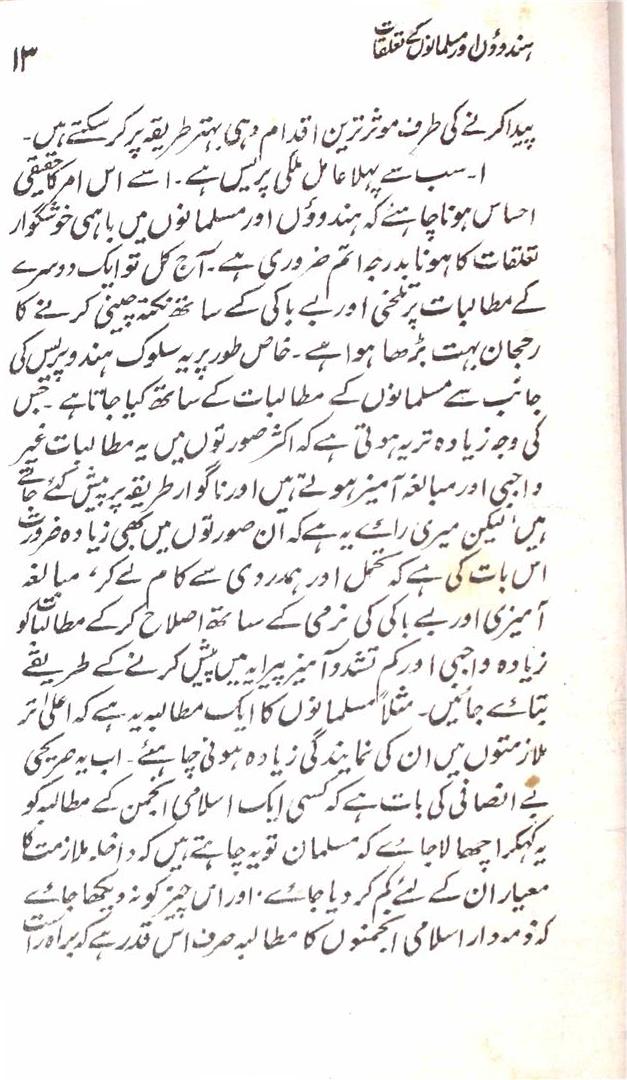 ہندوؤں اور مسلمانوں کے تعلقات
۱۳
پیدا کرنے کی طرف موثر ترین اقدام وہی بہتر طریقہ پر کر سکتے ہیں۔
۱۔ سب سے پہلا عامل ملکی پریس ہے۔ اسے اس امر کا حقیقی
احساس ہونا چاہئے کہ ہندوؤں اور مسلمانوں میں باہمی خوشگوار
تعلقات کا ہونا بدرجہ اتم ضروری ہے۔ آج کل تو ایک دوسرے
کے مطالبات پر تلخی اور بے باکی کے ساتھ نکتہ چینی کرنے کا
رحجان بہت بڑھا ہوا ہے۔ خاص طور پر یہ سلوک ہندو پریس کی
جانب سے مسلمانوں کے مطالبات کے ساتھ کیا جاتا ہے۔ جس
کی وجہ زیادہ تر یہ ہوتی ہے کہ اکثر صورتوں میں یہ مطالبات غیر
واجبی اور مبالغہ آمیز ہوتے ہیں اور ناگوار طریقہ پر پیش کئے جاتے
ہیں، لیکن میری رائے یہ ہے کہ ان صورتوں میں بھی زیادہ ضرورت
اس بات کی ہے کہ تحمل اور ہمدردی سے کام لے کر، مبالغہ
آمیزی اور بے باکی کی نرمی کے ساتھ اصلاح کر کے مطالبات کو
زیادہ واجبی اور کم تشدد آمیز پیرایہ میں پیش کرنے کے طریقے
بتائے جائیں۔ مثلاً مسلمانوں کا ایک مطالبہ یہ ہے کہ اعلیٰ تر
ملازمتوں میں ان کی نمایندگی زیادہ ہونی چاہئے۔ اب یہ صریحی
بے انصافی کی بات ہے کہ کسی ایک اسلامی انجمن کے مطالبہ کو
یہ کہکر اچھالا جائے کہ مسلمان تو یہ چاہتے ہیں کہ داخلہ ملازمت کا
معیار ان کے لئے کم کر دیا جائے۔ اور اس چیز کو نہ دیکھا جائے
کہ ذمہ دار اسلامی انجمنوں کا مطالبہ صرف اس قدر ہے کہ براہ راست